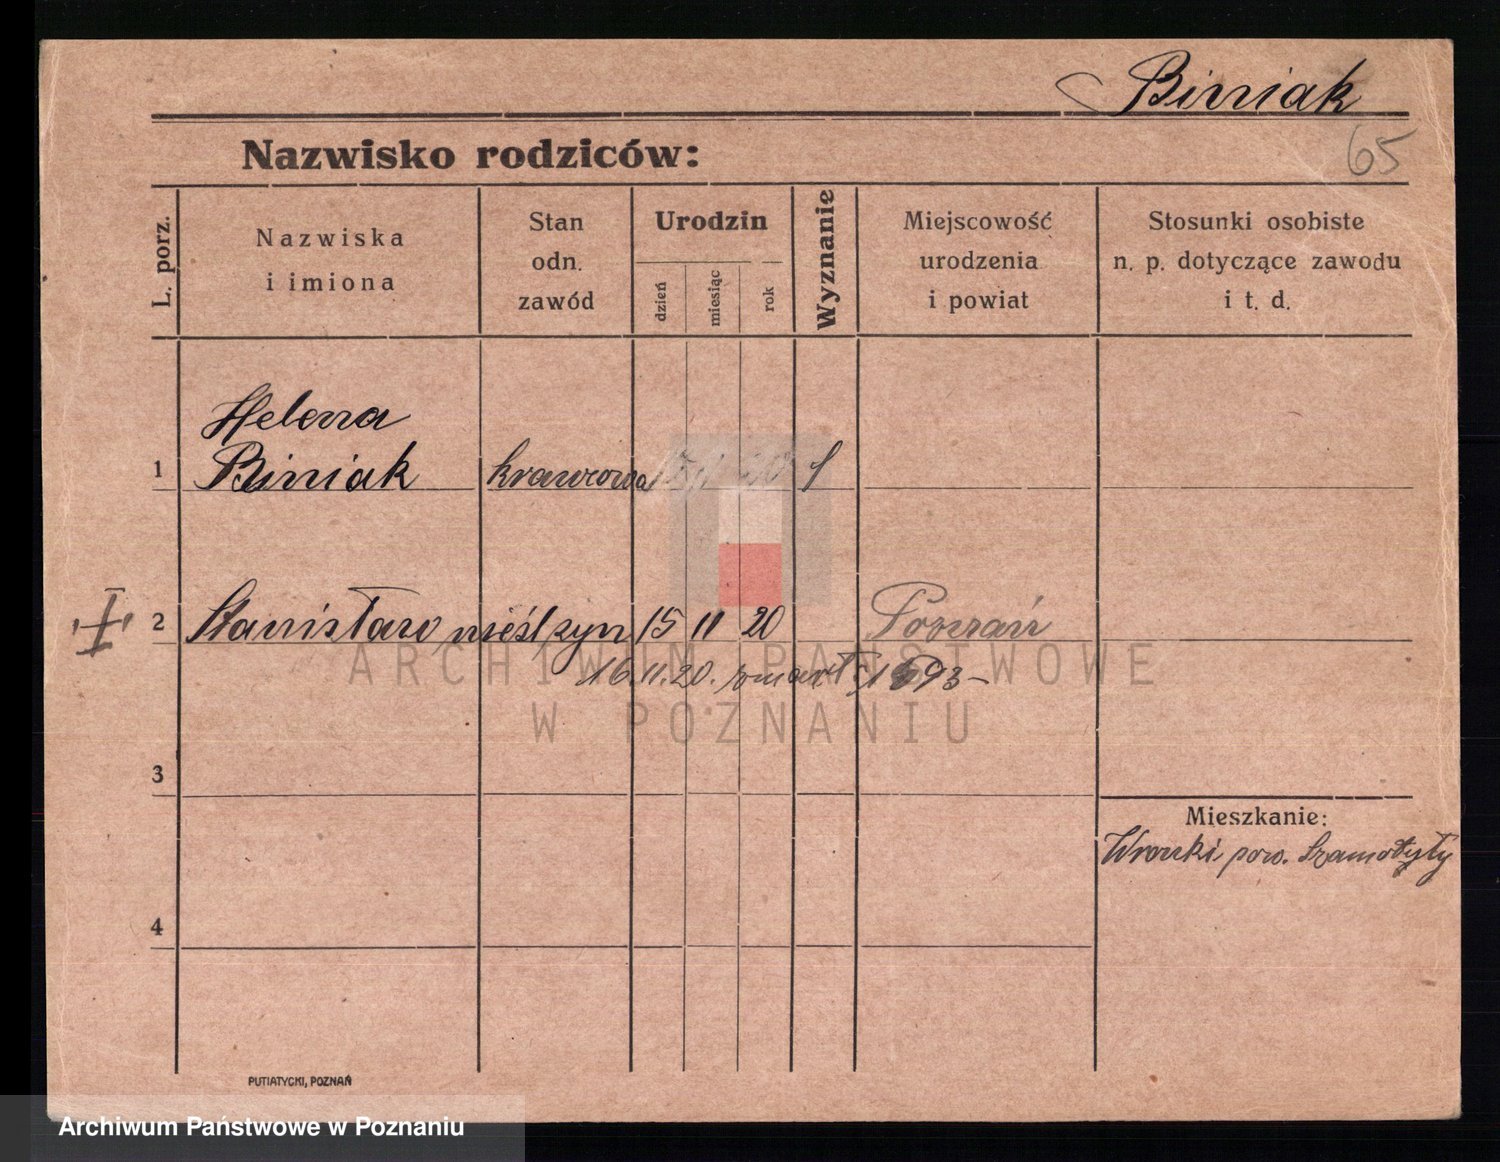 Biniak
65
Nazwisko rodziców:
L. porz.
Nazwiska
i imiona
Stan
odn.
zawód
Urodzin
dzień
miesiąc
rok
Wyznanie
Miejscowość
urodzenia
i powiat
Stosunki osobiste
n. p. dotyczące zawodu
i t. d.
Helena
1 Biniak krawcowa
2 Stanisław nieśl. syn 15 11 20 Poznań
16.11.20. zmarł
ARCHIWUM PAŃSTWOWE
W POZNANIU
3
Mieszkanie:
Wronki pow. Szamotyły
4
PUTIATYCKI, POZNAŃ
Archiwum Państwowe w Poznaniu